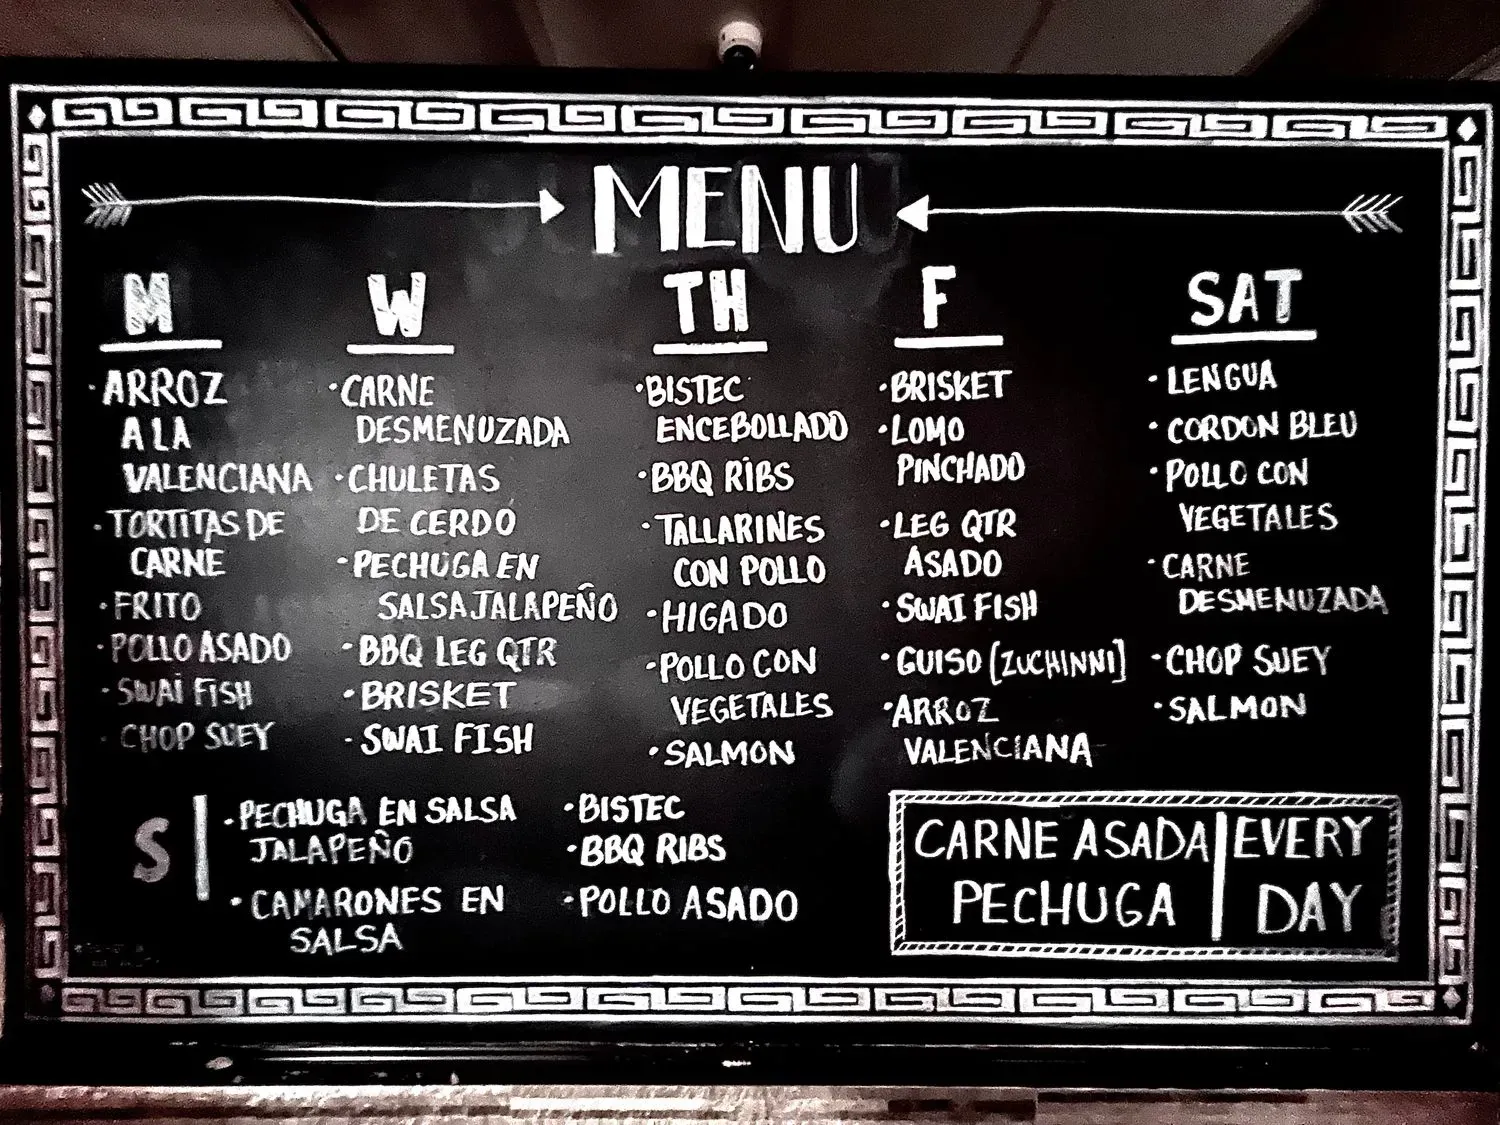 MENU
M
·ARROZ
A LA
VALENCIANA
·TORTITAS DE
CARNE
·FRITO
·POLLO ASADO
·SWAI FISH
·CHOP SUEY
W
·CARNE
DESMENUZADA
·CHULETAS
DE CERDO
·PECHUGA EN
SALSA JALAPEÑO
·BBQ LEG QTR
·BRISKET
·SWAI FISH
TH
·BISTEC
ENCEBOLLADO
·BBQ RIBS
·TALLARINES
CON POLLO
·HIGADO
·POLLO CON
VEGETALES
·SALMON
F
·BRISKET
·LOMO
PINCHADO
·LEG QTR
ASADO
·SWAI FISH
·GUISO [ZUCHINNI]
·ARROZ
VALENCIANA
SAT
·LENGUA
·CORDON BLEU
·POLLO CON
VEGETALES
·CARNE
DESMENUZADA
·CHOP SUEY
·SALMON
S
·PECHUGA EN SALSA
JALAPEÑO
·CAMARONES EN
SALSA
·BISTEC
·BBQ RIBS
·POLLO ASADO
CARNE ASADA | EVERY
PECHUGA | DAY